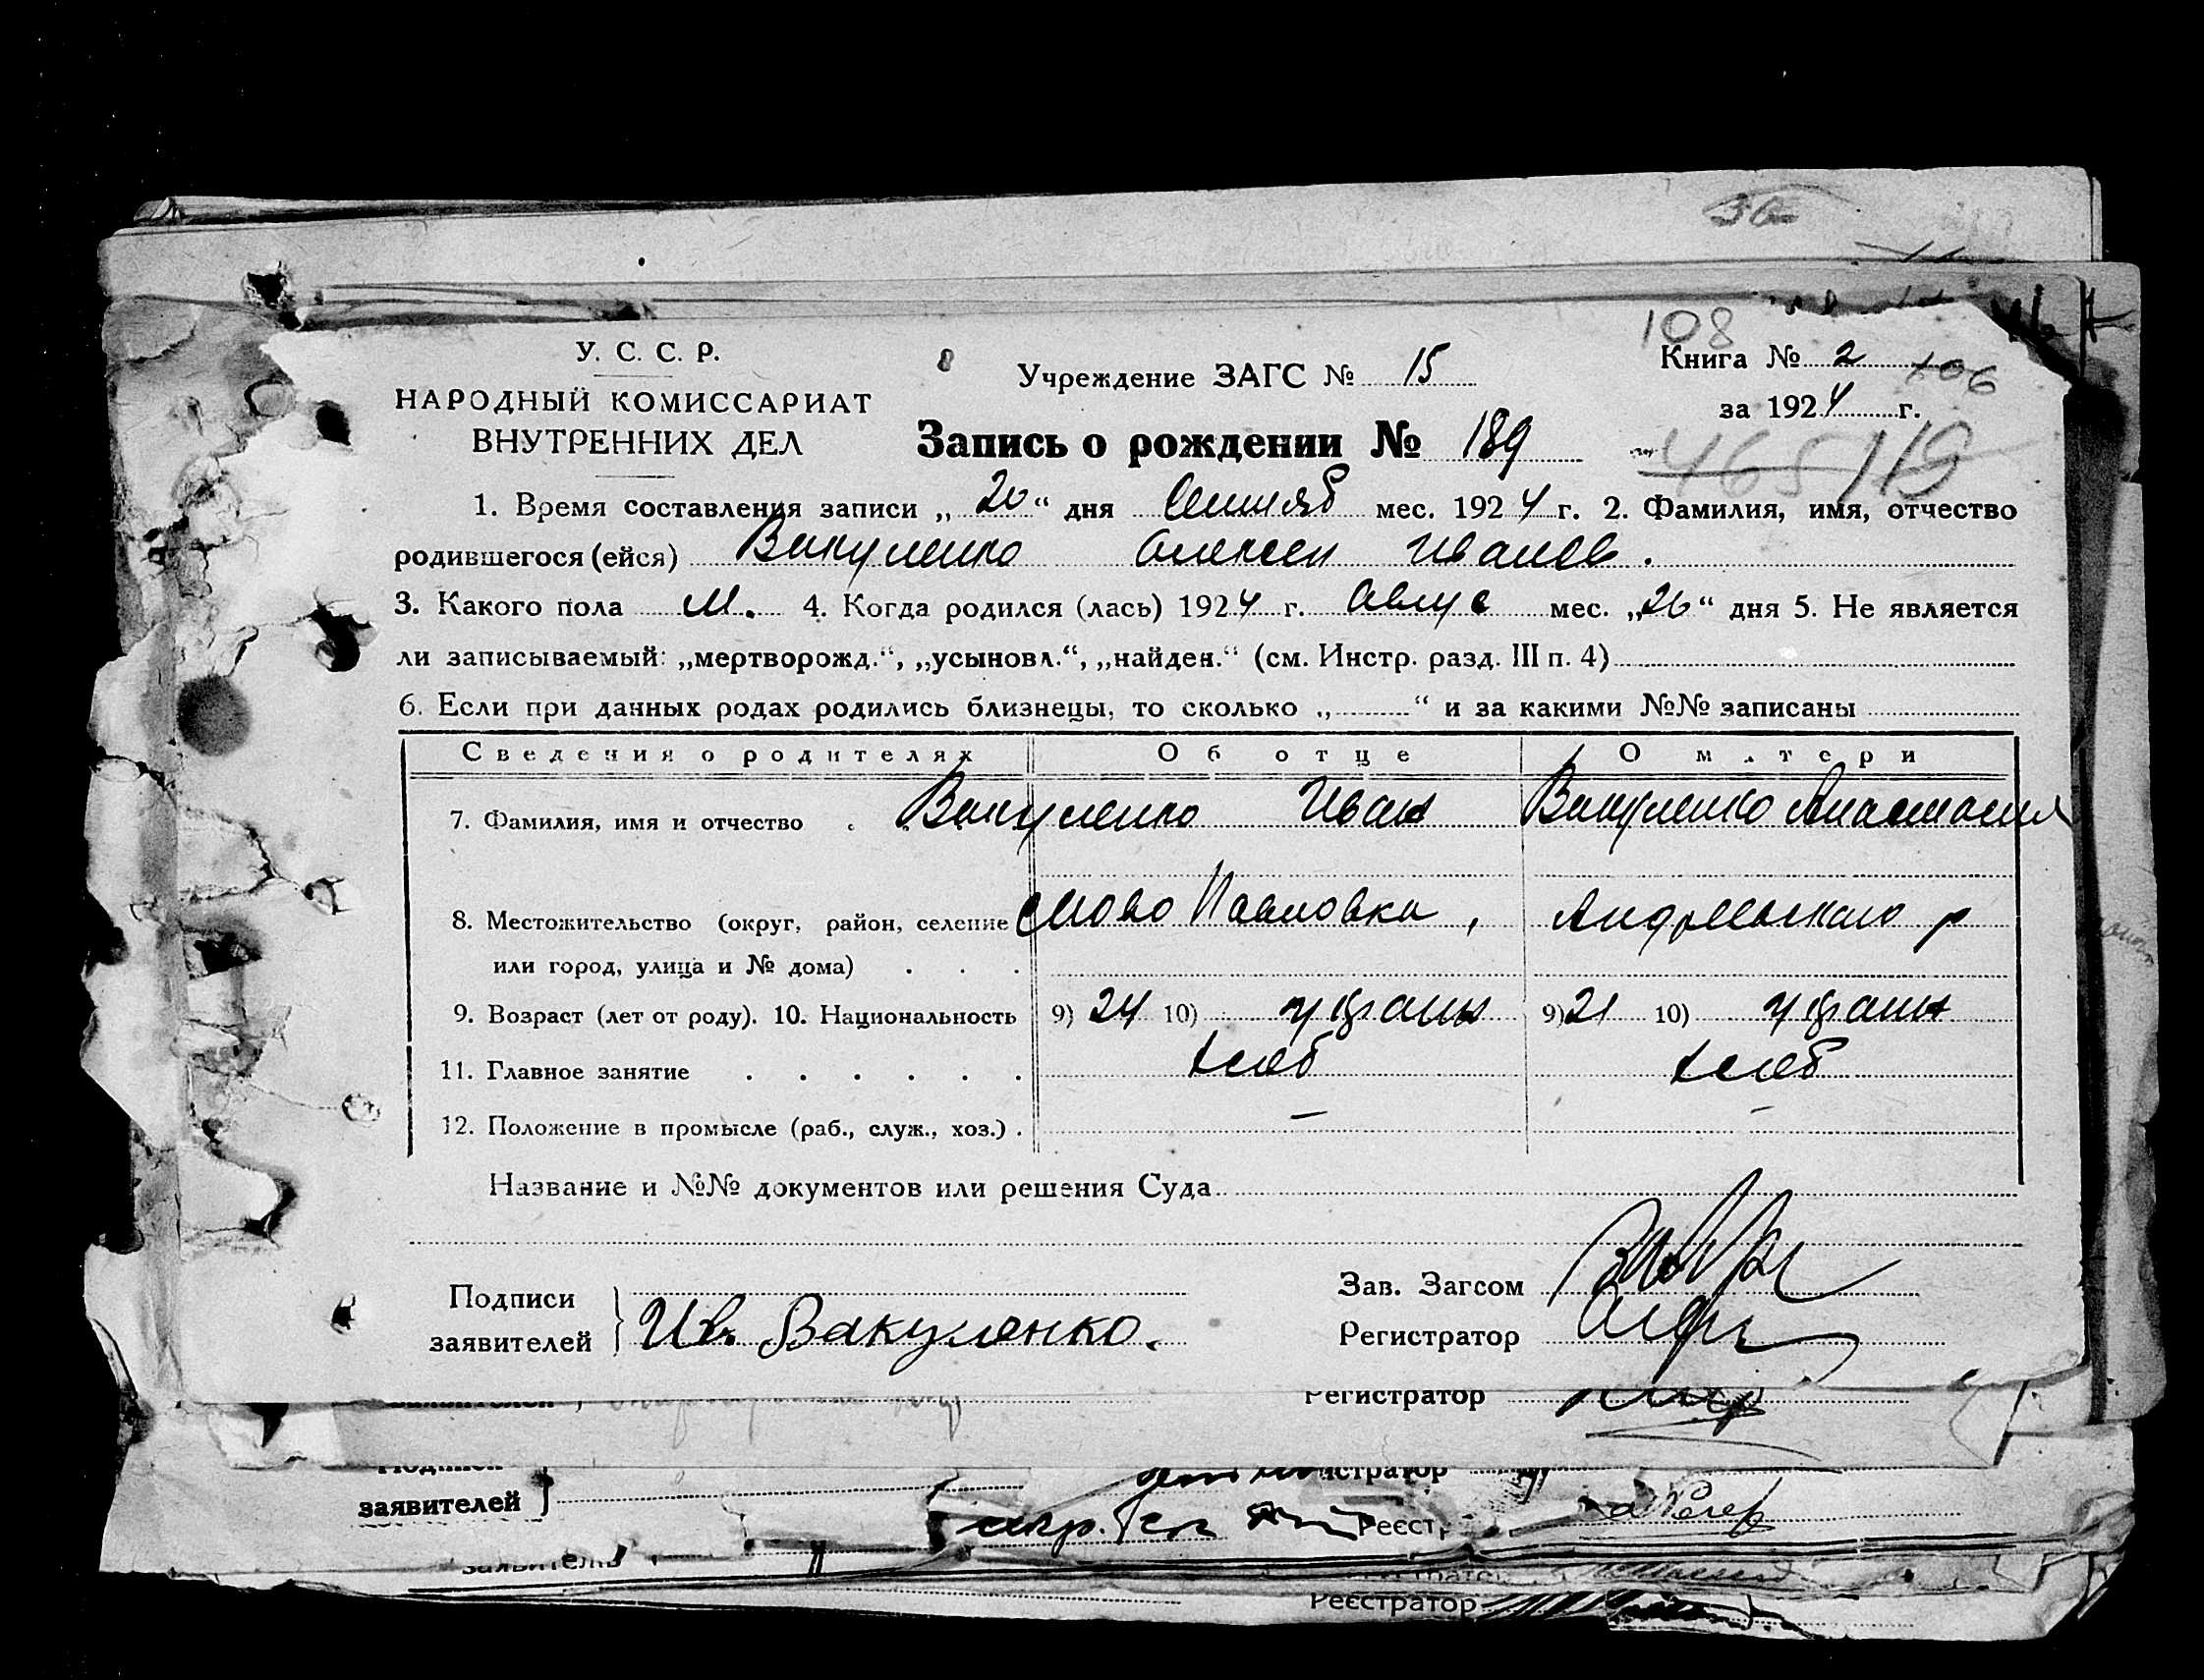 36
108
У. С. С. Р.
НАРОДНЫЙ КОМИССАРИАТ
ВНУТРЕННИХ ДЕЛ
Учреждение ЗАГС № 15
Книга № 2
106
за 1924 г.
Запись о рождении № 189
465 119
1. Время составления записи „20“ дня Сентяб мес. 1924 г. 2. Фамилия, имя, отчество
родившегося (ейся) Вакуленко Алексей Иванов.
3. Какого пола м. 4. Когда родился (лась) 1924 г. Авгус мес. „26“ дня 5. Не является
ли записываемый: „мертворожд.“, „усыновл.“, „найден.“ (см. Инстр. разд. III п. 4)
6. Если при данных родах родились близнецы, то сколько „ “ и за какими №№ записаны
Сведения о родителях Об отце О матери
7. Фамилия, имя и отчество Вакуленко Иван Вакуленко Анастасия
8. Местожительство (округ, район, селение Ново Павловка,
или город, улица и № дома)
9. Возраст (лет от роду). 10. Национальность 9) 24 10) украин 9) 21 10) украин
11. Главное занятие хлеб хлеб
12. Положение в промысле (раб., служ., хоз.) — —
Название и №№ документов или решения Суда
Подписи
заявителей Ив. Вакуленко.
Зав. Загсом
Регистратор
Регистратор
заявителей
Реєстратор